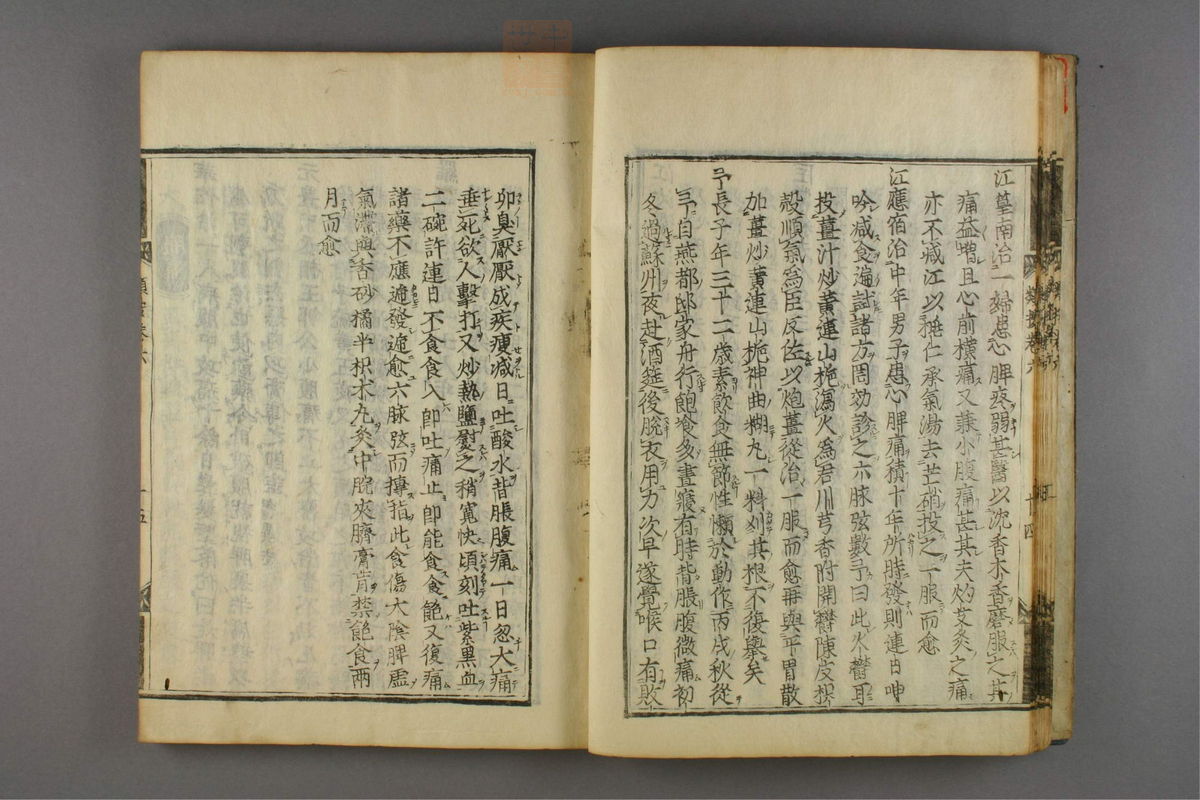 江墓南治一婦患心脾疼弱甚醫以沈香木香磨服之其
痛益增且心前橫痛又兼小腹痛甚其夫灼艾灸之痛
亦不减江以桃仁承氣湯去芒硝投之一服而愈
江應宿治中年男子患心脾痛積十年所時發則連日呻
吟减食遍試諸方罔効診之六脉弦數予曰此火鬱耳
投薑汁炒黃連山梔瀉火爲君川芎香附開鬱陳皮枳
殼順氣爲臣反佐以炮薑從治一服而愈再與平胃散
加薑炒黃連山梔神曲糊丸一料刈其根不復舉矣
予長子年三十二歲素飲食無節性懶於動作丙戌秋從
予自燕都邸家舟行飽食多晝寢有時背脹腹微痛初
冬過蘇州夜赴酒筵後脫衣用力次早遂覺喉口有敗
卵臭厭厭成疾瘦减日吐酸水背脹腹痛一日忽大痛
垂死欲人擊打又炒熱鹽熨之稍寬快頃刻吐紫黑血
二碗許連日不食食入卽吐痛止卽能食食飽又復痛
諸藥不應遞發遞愈六脉弦而摶指此食傷大陰脾虛
氣滯與香砂橘半枳朮丸灸中脘夾臍膏肓禁飽食兩
月而愈